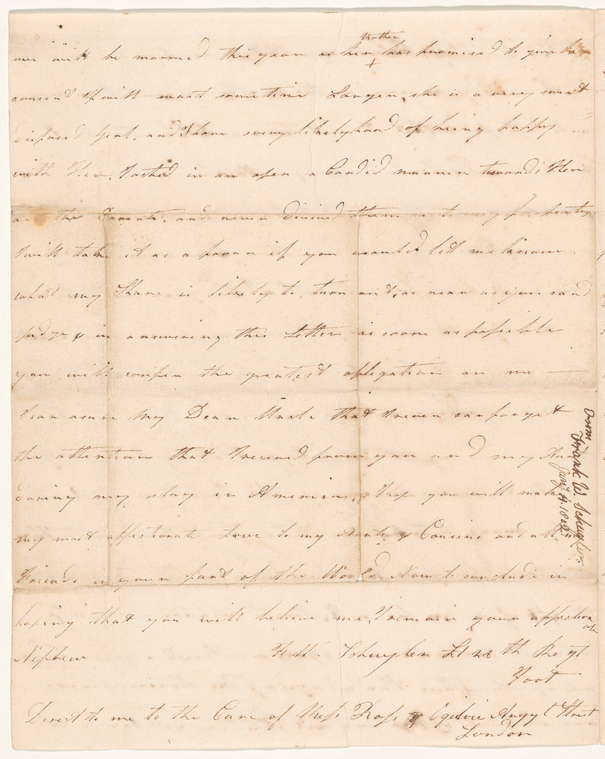 me will be married this year as her Mother has promised to give her
consent if will wait some time Longer, she is a very sweet
disposed Girl, and I have every likelyhood of being happy
with Her. I acted in an open & Candid manner towards Her
and the Parents, and never
I will take it as a favor if you would let me know
what my Share is likely to turn out, as near as you can
judge & in answering this Letter as soon as possible
you will confer the greatest obligation on me —
I can assure my Dear Uncle that I never can forget
the attention that I received from you and my
during my stay in America, I hope you will make
my most affectionate Love to my Aunts & Cousins and all
Friends in your part of the World. Now to conclude in
hoping that you will believe me I remain your affectionate
Nephew
Schuyler Lt th Regt
Foot
Direct to me to the Care of Mess Ross & Ogilvie Argyl Street
London
from Frank W Schuyler